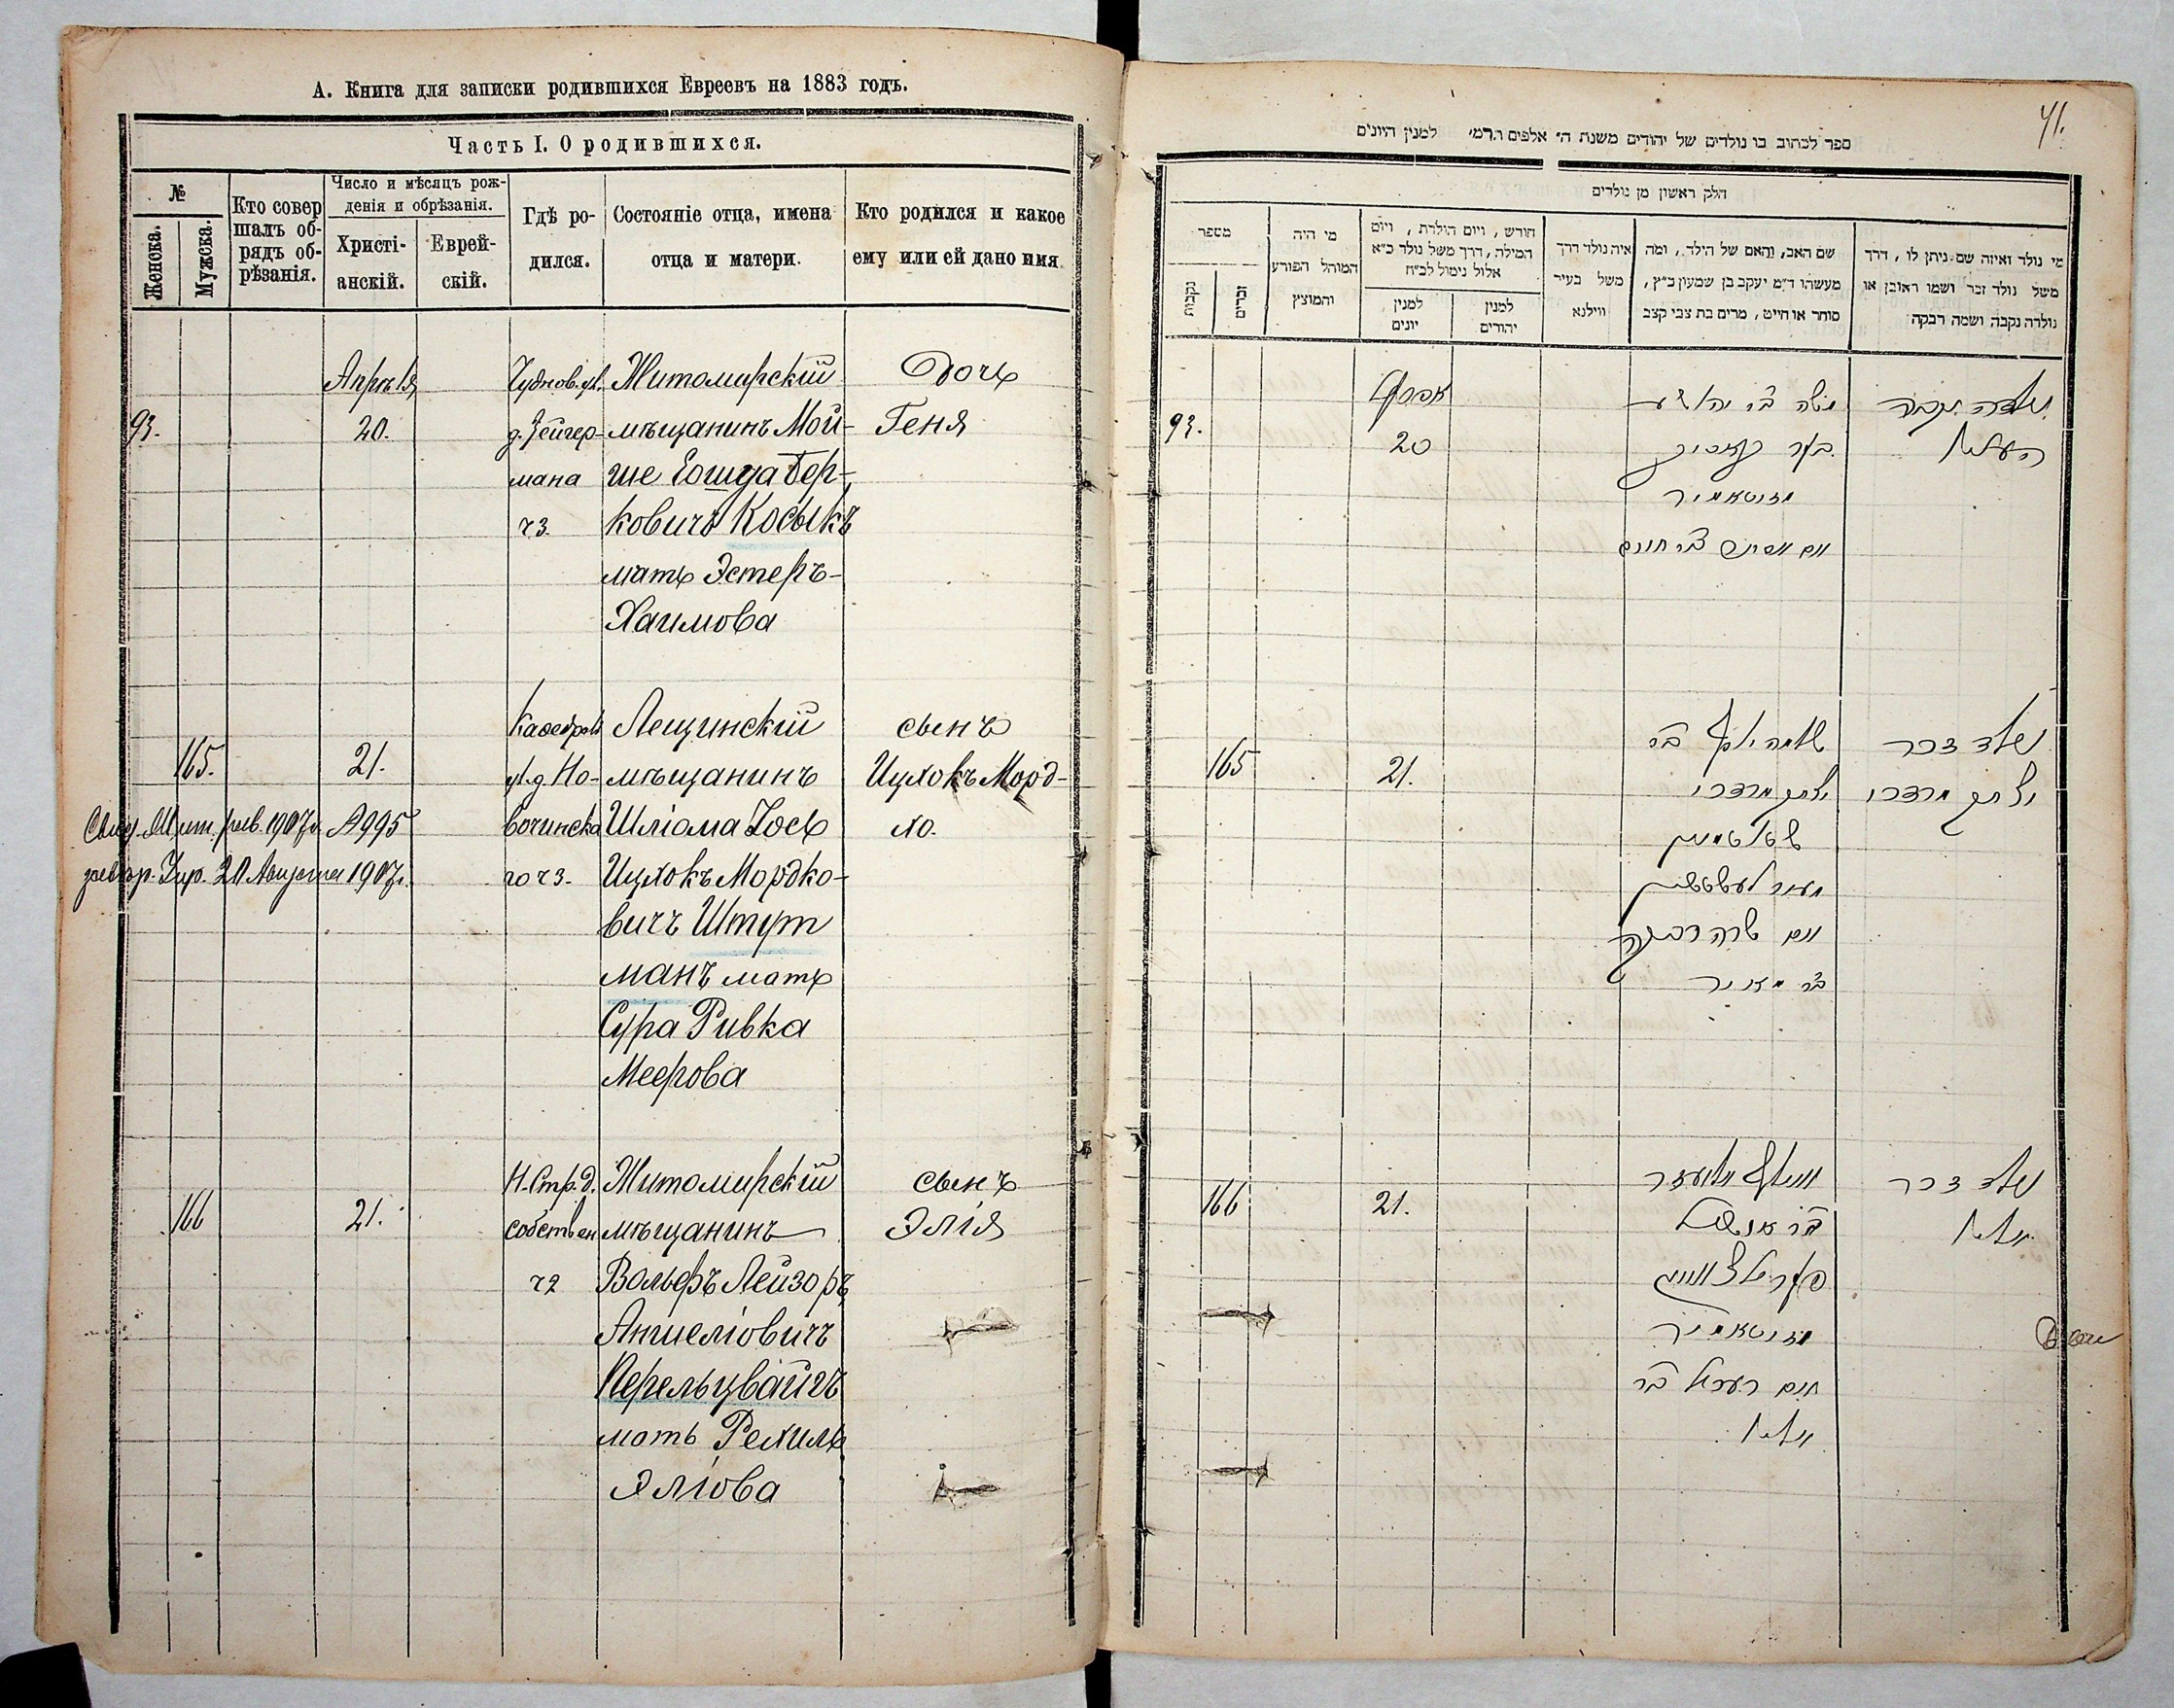 А. Книга для записки родившихся Евреевъ на 1883 годъ.
Часть I. О родившихся.
№
Женска.
Мужска.
Кто совер
шалъ об-
рядъ об-
рѣзанія.
Число и мѣсяцъ рож-
денія и обрѣзанія.
Христі-
анскій.
Еврей-
скій.
Гдѣ ро-
дился.
Состояніе отца, имена
отца и матери.
Кто родился и какое
ему или ей дано имя.
93.
Апрѣля
20.
Чуднов. ул.
д. Зейгер-
мана
ч3.
Житомирскій
мѣщанинъ Мой-
ше Еошуа Бер-
ковичъ Косыкъ
мать Эстеръ-
Хаимова
Дочь
Геня
165.
21.
Свид. Жит. рав. 1907г. №995
20 Августа 1907г.
Кафедрал
ул. д. Но-
вочинска
го ч3.
Лещинскій
мѣщанинъ
Шліома Іось
Ицхокъ Мордко-
вичъ Штут
манъ мать
Сура Ривка
Меерова
сынъ
Ицхокъ Морд-
хо.
166
21.
Н. Стр. д.
собствен
ч2
Житомирскій
мѣщанинъ
Вольфъ Лейзоръ
Аншеліовичъ
Перельцвайгъ
мать Рехиль
Эліова
сынъ
Элія
41.
ספר לכתוב בו נולדים של יהודים משנת ה' אלפים תרמ' למנין היונים
חלק ראשון מן נולדים
מספר
נקבות
זכרים
מי היה
המוהל הפורע
והמוצץ
חורש, ויום הולדת, ויום
המילה, דרך משל נולד כ"א
אלול נימול לכ"ח
למנין
יונים
למנין
יהודים
איה נולד דרך
משל בעיר
ווילנא
שם האב, והאם של הילד, ומה
מעשהו ד"מ יעקב בן שמעון כ"ץ,
סוחר או חייט, מרים בת צבי קצב
מי נולד ואיזה שם ניתן לו, דרך
משל נולד זכר ושמו ראובן או
נולדה נקבה ושמה רבקה
93.
אפריל
20
משה בר יהושע
בער קאסיק
מזיטאמיר
אם אסתר בר חיים
נולדה נקבה
העניא
165
21.
שלמה יוסף בר
יצחק מרדכי
שטוטמאן
מעיר לעשטשין
אם שרה רבקה
בר מאיר
נולד זכר
יצחק מרדכי
166
21.
וואלף אליעזר
בר אנשיל
פערילצווייג
מזיטאמיר
אם רעכיל בר
אליא
נולד זכר
אליא